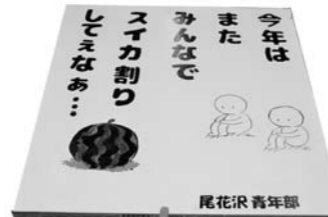 今年は
また
みんなで
スイカ割り
してぇなぁ…
尾花沢 青年部